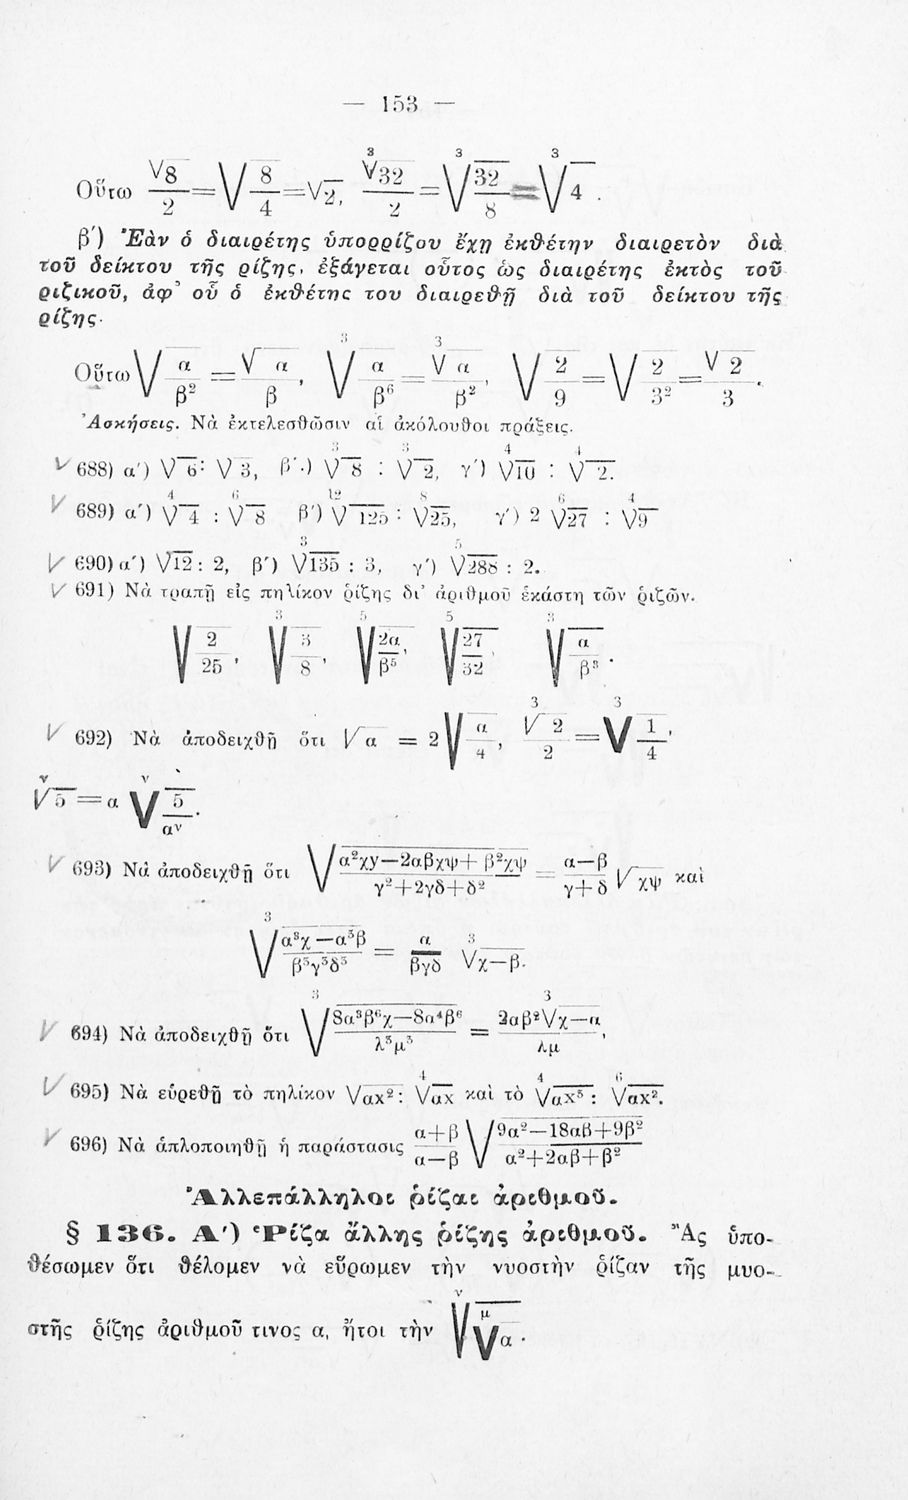 — 153 —
Οὕτω √8/2 = √(8/4) = √2, ∛32/2 = ∛(32/8) = ∛4.
β΄) Ἐὰν ὁ διαιρέτης ὑπορρίζου ἔχῃ ἐκθέτην διαιρετὸν διὰ
τοῦ δείκτου τῆς ρίζης, ἐξάγεται οὗτος ὡς διαιρέτης ἐκτὸς τοῦ
ριζικοῦ, ἀφ' οὗ ὁ ἐκθέτης του διαιρεθῇ διὰ τοῦ δείκτου τῆς
ρίζης.
Οὕτω √(α/β²) = √α/β, ∛(α/β⁶) = ∛α/β², √(2/9) = √(2/3²) = √2/3.
Ἀσκήσεις. Νὰ ἐκτελεσθῶσιν αἱ ἀκόλουθοι πράξεις.
688) α΄) √6 : √3, β΄) ∛8 : ∛2, γ΄) ∜10 : ∜2.
689) α΄) ∜4 : ⁶√8 β΄) ¹²√125 : ⁸√25, γ΄) 2 ⁶√27 : ∜9
690) α΄) √12 : 2, β΄) ∛135 : 3, γ΄) ⁵√288 : 2.
691) Νὰ τραπῇ εἰς πηλίκον ῥίζης δι' ἀριθμοῦ ἑκάστη τῶν ῥιζῶν.
√(2/25), ∛(3/8), ⁵√(2α/β⁵), ⁵√(27/32), ∛(α/β³).
692) Νὰ ἀποδειχθῇ ὅτι √α = 2√(α/4), ∛2/2 = ∛(1/4),
ᵛ√5 = α ᵛ√(5/αᵛ).
693) Νὰ ἀποδειχθῇ ὅτι √((α²χy—2αβχψ+β²χψ)/(γ²+2γδ+δ²)) = (α—β)/(γ+δ) √χψ καὶ
∛((α³χ—α³β)/(β³γ³δ³)) = α/βγδ ∛(χ—β).
694) Νὰ ἀποδειχθῇ ὅτι ∛((8α³β⁶χ—8α⁴β⁶)/(λ³μ³)) = 2αβ²∛(χ—α)/λμ,
695) Νὰ εὑρεθῇ τὸ πηλίκον √αx² : ∜αx καὶ τὸ ∜αx⁵ : ⁶√αx².
696) Νὰ ἁπλοποιηθῇ ἡ παράστασις (α+β)/(α—β) √((9α²—18αβ+9β²)/(α²+2αβ+β²))
Ἀλλεπάλληλοι ῥίζαι ἀριθμοῦ.
§ 136. Α΄) Ῥίζα ἄλλης ῥίζης ἀριθμοῦ. Ἂς ὑπο-
θέσωμεν ὅτι θέλομεν νὰ εὕρωμεν τὴν νυοστὴν ῥίζαν τῆς μυο-
στῆς ῥίζης ἀριθμοῦ τινος α, ἤτοι τὴν ᵛ√(ᵘ√α).